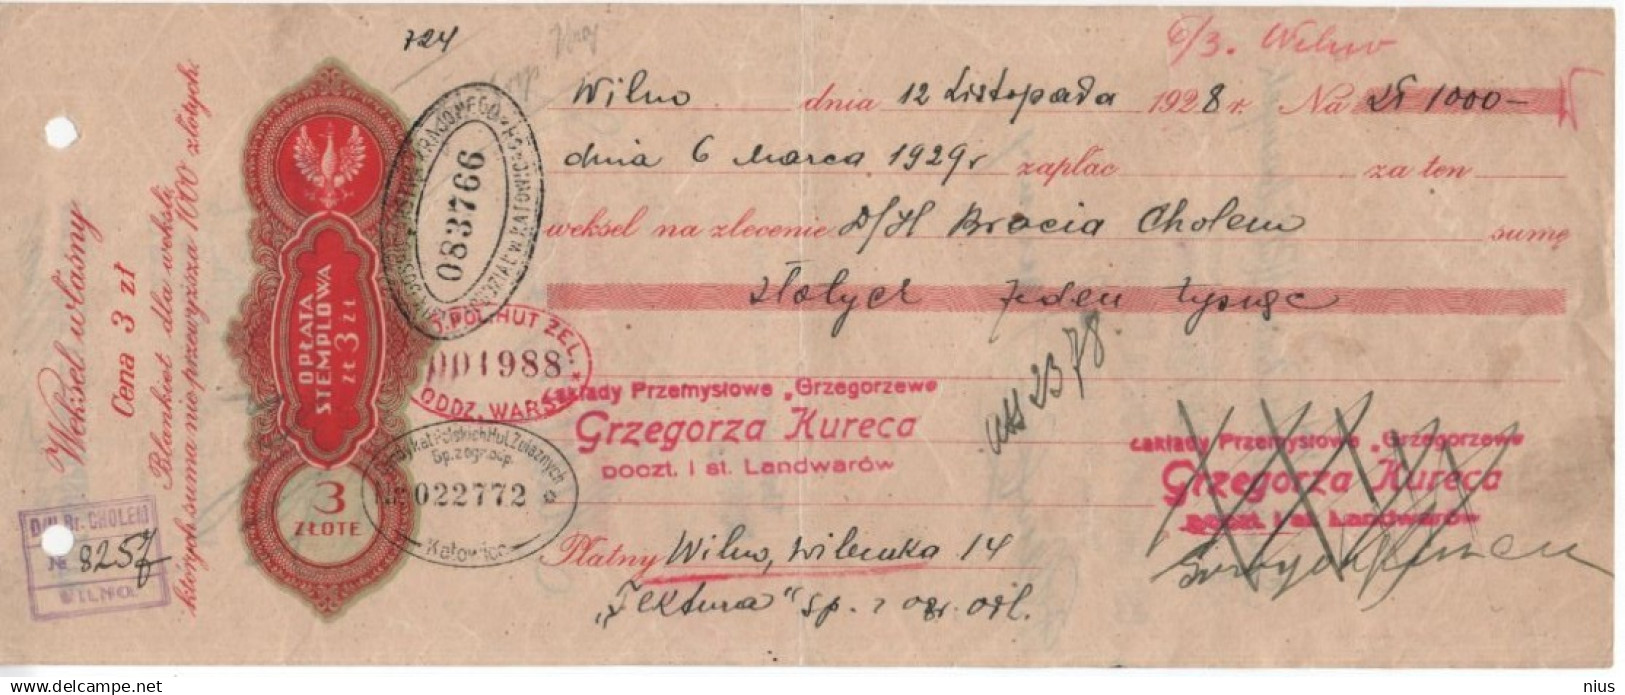 724
C/3. Wilno
Wilno dnia 12 Listopada 1928 r. Na Zł 1000-
dnia 6 marca 1929 r zapłac za ten
weksel na zlecenie D/H Bracia Cholem sumę
złotych jeden tysiąc
Weksel własny
Cena 3 zł
Blankiet dla weksli,
których suma nie przewyższa 1000 złotych.
OPŁATA
STEMPLOWA
ZŁ 3 ZŁ
3
ZŁOTE
KRAJOWEGO
ODDZIAŁ w KATOWICACH
083766
POL. HUT ŻEL.
001988
ODDZ. WARSZ.
Syndykat Polskich Hut Żelaznych
Sp. z ogr. odp.
Nr. 022772
Katowice
Zakłady Przemysłowe „Grzegorzewo
Grzegorza Kureca
poczt. i st. Landwarów
2378
Zakłady Przemysłowe „Grzegorzewo
Grzegorza Kureca
poczt. i st. Landwarów
Płatny Wilno, Wileńska 14
„Tektura" sp. z ogr. odp.
D/H Br. CHOLEM
№ 8257
WILNO.
delcampe.net
nius